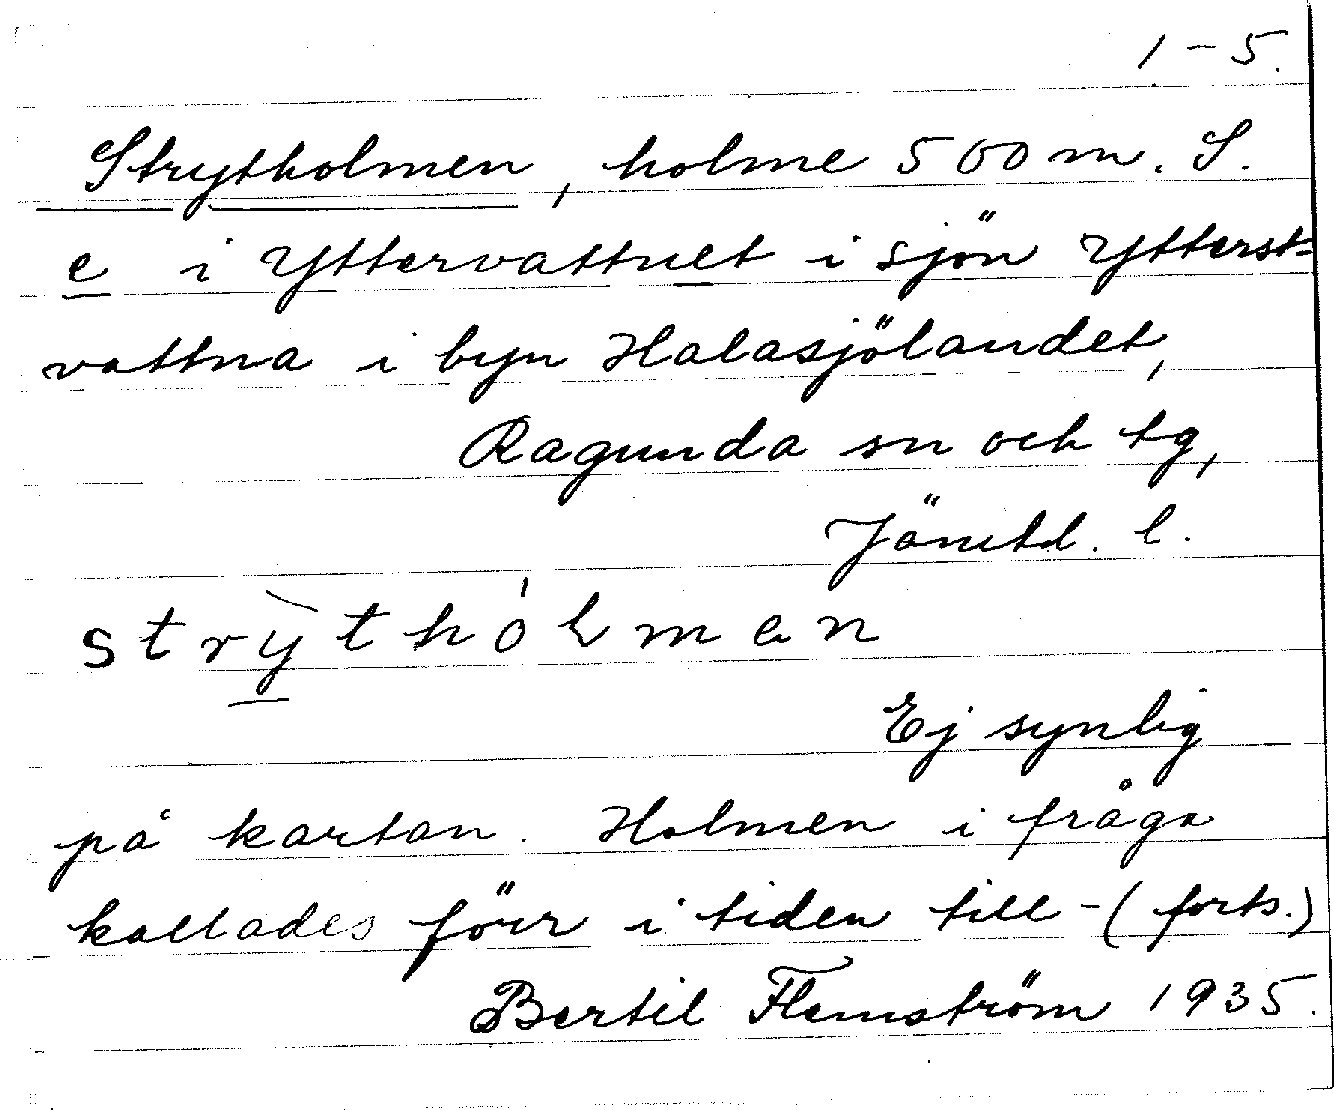 1-5.
Strytholmen, holme 500 m. S.
e i Yttervattnet i sjön Ytterst-
vattna i byn Halasjölandet,
Ragunda sn och tg,
Jämtd. l.
strỳthólmen
Ej synlig
på kartan. Holmen i fråga
kallades förr i tiden till- (forts.)
Bertil Flemström 1935.